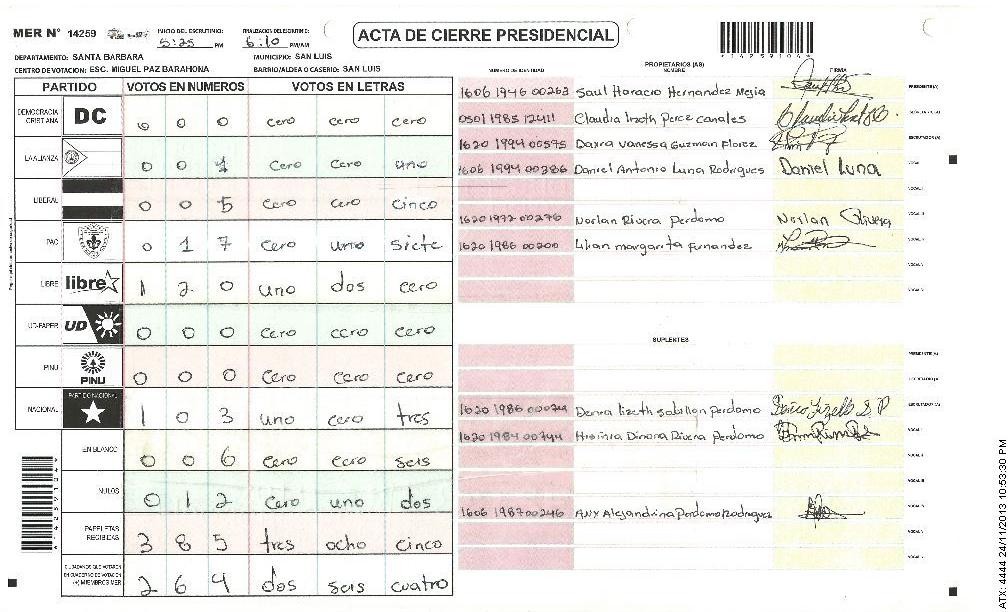 MER N° 14259
INICIO DEL ESCRUTINIO: 5:25 PM
FINALIZACION DEL ESCRUTINIO: 6:10 PM/AM
ACTA DE CIERRE PRESIDENCIAL
DEPARTAMENTO: SANTA BARBARA
MUNICIPIO: SAN LUIS
CENTRO DE VOTACION: ESC. MIGUEL PAZ BARAHONA
BARRIO/ALDEA O CASERIO: SAN LUIS
PARTIDO VOTOS EN NUMEROS VOTOS EN LETRAS
DEMOCRACIA CRISTIANA DC 0 0 0 cero cero cero
LA ALIANZA 0 0 1 cero cero uno
LIBERAL 0 0 5 cero cero cinco
PAC 0 1 7 cero uno siete
LIBRE libre 1 2 0 uno dos cero
UD-FAPER UD 0 0 0 cero cero cero
PINU PINU 0 0 0 cero cero cero
NACIONAL PARTIDO NACIONAL 1 0 3 uno cero tres
EN BLANCO 0 0 6 cero cero seis
NULOS 0 1 2 cero uno dos
PAPELETAS RECIBIDAS 3 8 5 tres ocho cinco
CIUDADANOS QUE VOTARON EN CUADERNO DE VOTACION (+) MIEMBROS MER 2 6 4 dos seis cuatro
PROPIETARIOS (AS)
NUMERO DE IDENTIDAD NOMBRE FIRMA
1606 1946 00263 Saul Horacio Hernandez Mejia PRESIDENTE(A)
0501 1985 12411 Claudia Izeth Perez canales SECRETARIO(A)
1620 1994 00575 Daxra Vanessa Guzman Florez ESCRUTADOR(A)
1606 1994 00386 Daniel Antonio Luna Rodrigues Daniel Luna VOCAL I
1620 1972 00276 Norlan Rivera Perdomo Norlan
1620 1986 00200 Lilian margarita Fernandez
SUPLENTES
PRESIDENTE(A)
SECRETARIO(A)
1620 1986 00024 Denra lizeth Sabillon Perdomo ESCRUTADOR(A)
1620 1984 00744 Dinora Rivera Perdomo
1606 1987 00246 Any Alejandrina Perdomo Rodriguez
ATX: 4444 24/11/2013 10:53:30 PM